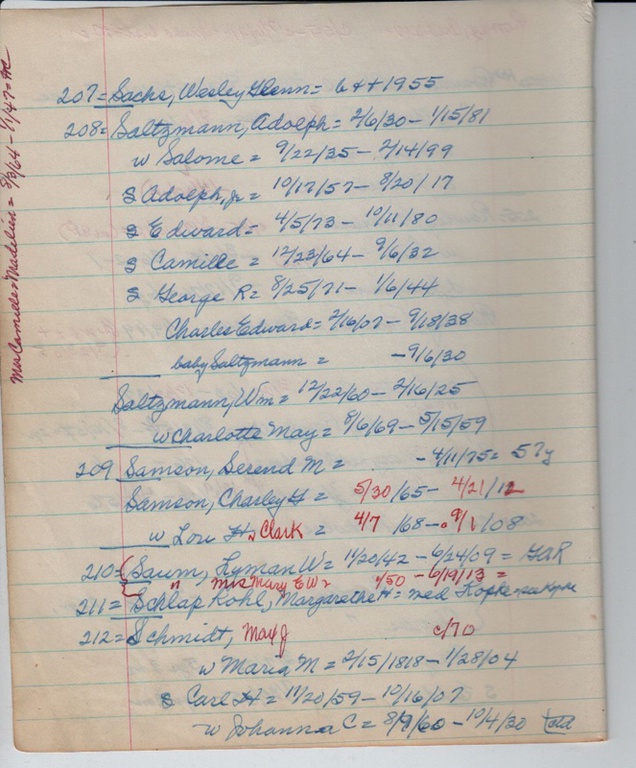 207 = Sachs, Wesley Glenn = 6 ++ 1955
208 = Saltzmann, Adolph = 2/6/30 - 1/15/81
w Salome = 9/22/35 - 2/14/99
S Adolph, Jr = 10/17/57 - 8/20/17
S Edward = 4/5/73 - 10/11/80
S Camille = 12/23/64 - 9/6/32
S George R = 8/25/71 - 1/6/44
Charles Edward = 2/16/07 - 9/18/38
baby Saltzmann = - 9/6/30
Saltzmann, Wm = 12/22/60 - 2/16/25
w Charlotte May = 8/6/69 - 5/15/59
209 Samson, Serend M = - 4/11/75 = 57y
Samson, Charley H = 5/30/65 - 4/21/12
w Lou H Clark = 4/7/68 - 9/1/08
210 = Saum, Hyman W = 11/20/42 - 6/24/09 = GAR
" Mrs Mary E W = 1/50 - 6/19/13 =
211 = Schlap Kohl, Margarethe H = ned Kopke
212 = Schmidt, May J c/70
w Maria M = 2/15/1818 - 1/28/04
S Carl H = 11/20/59 - 10/16/07
w Johanna C = 8/9/60 - 10/4/30
Mrs Camille = Madeline = 8/3/64 - 1/1/47 =